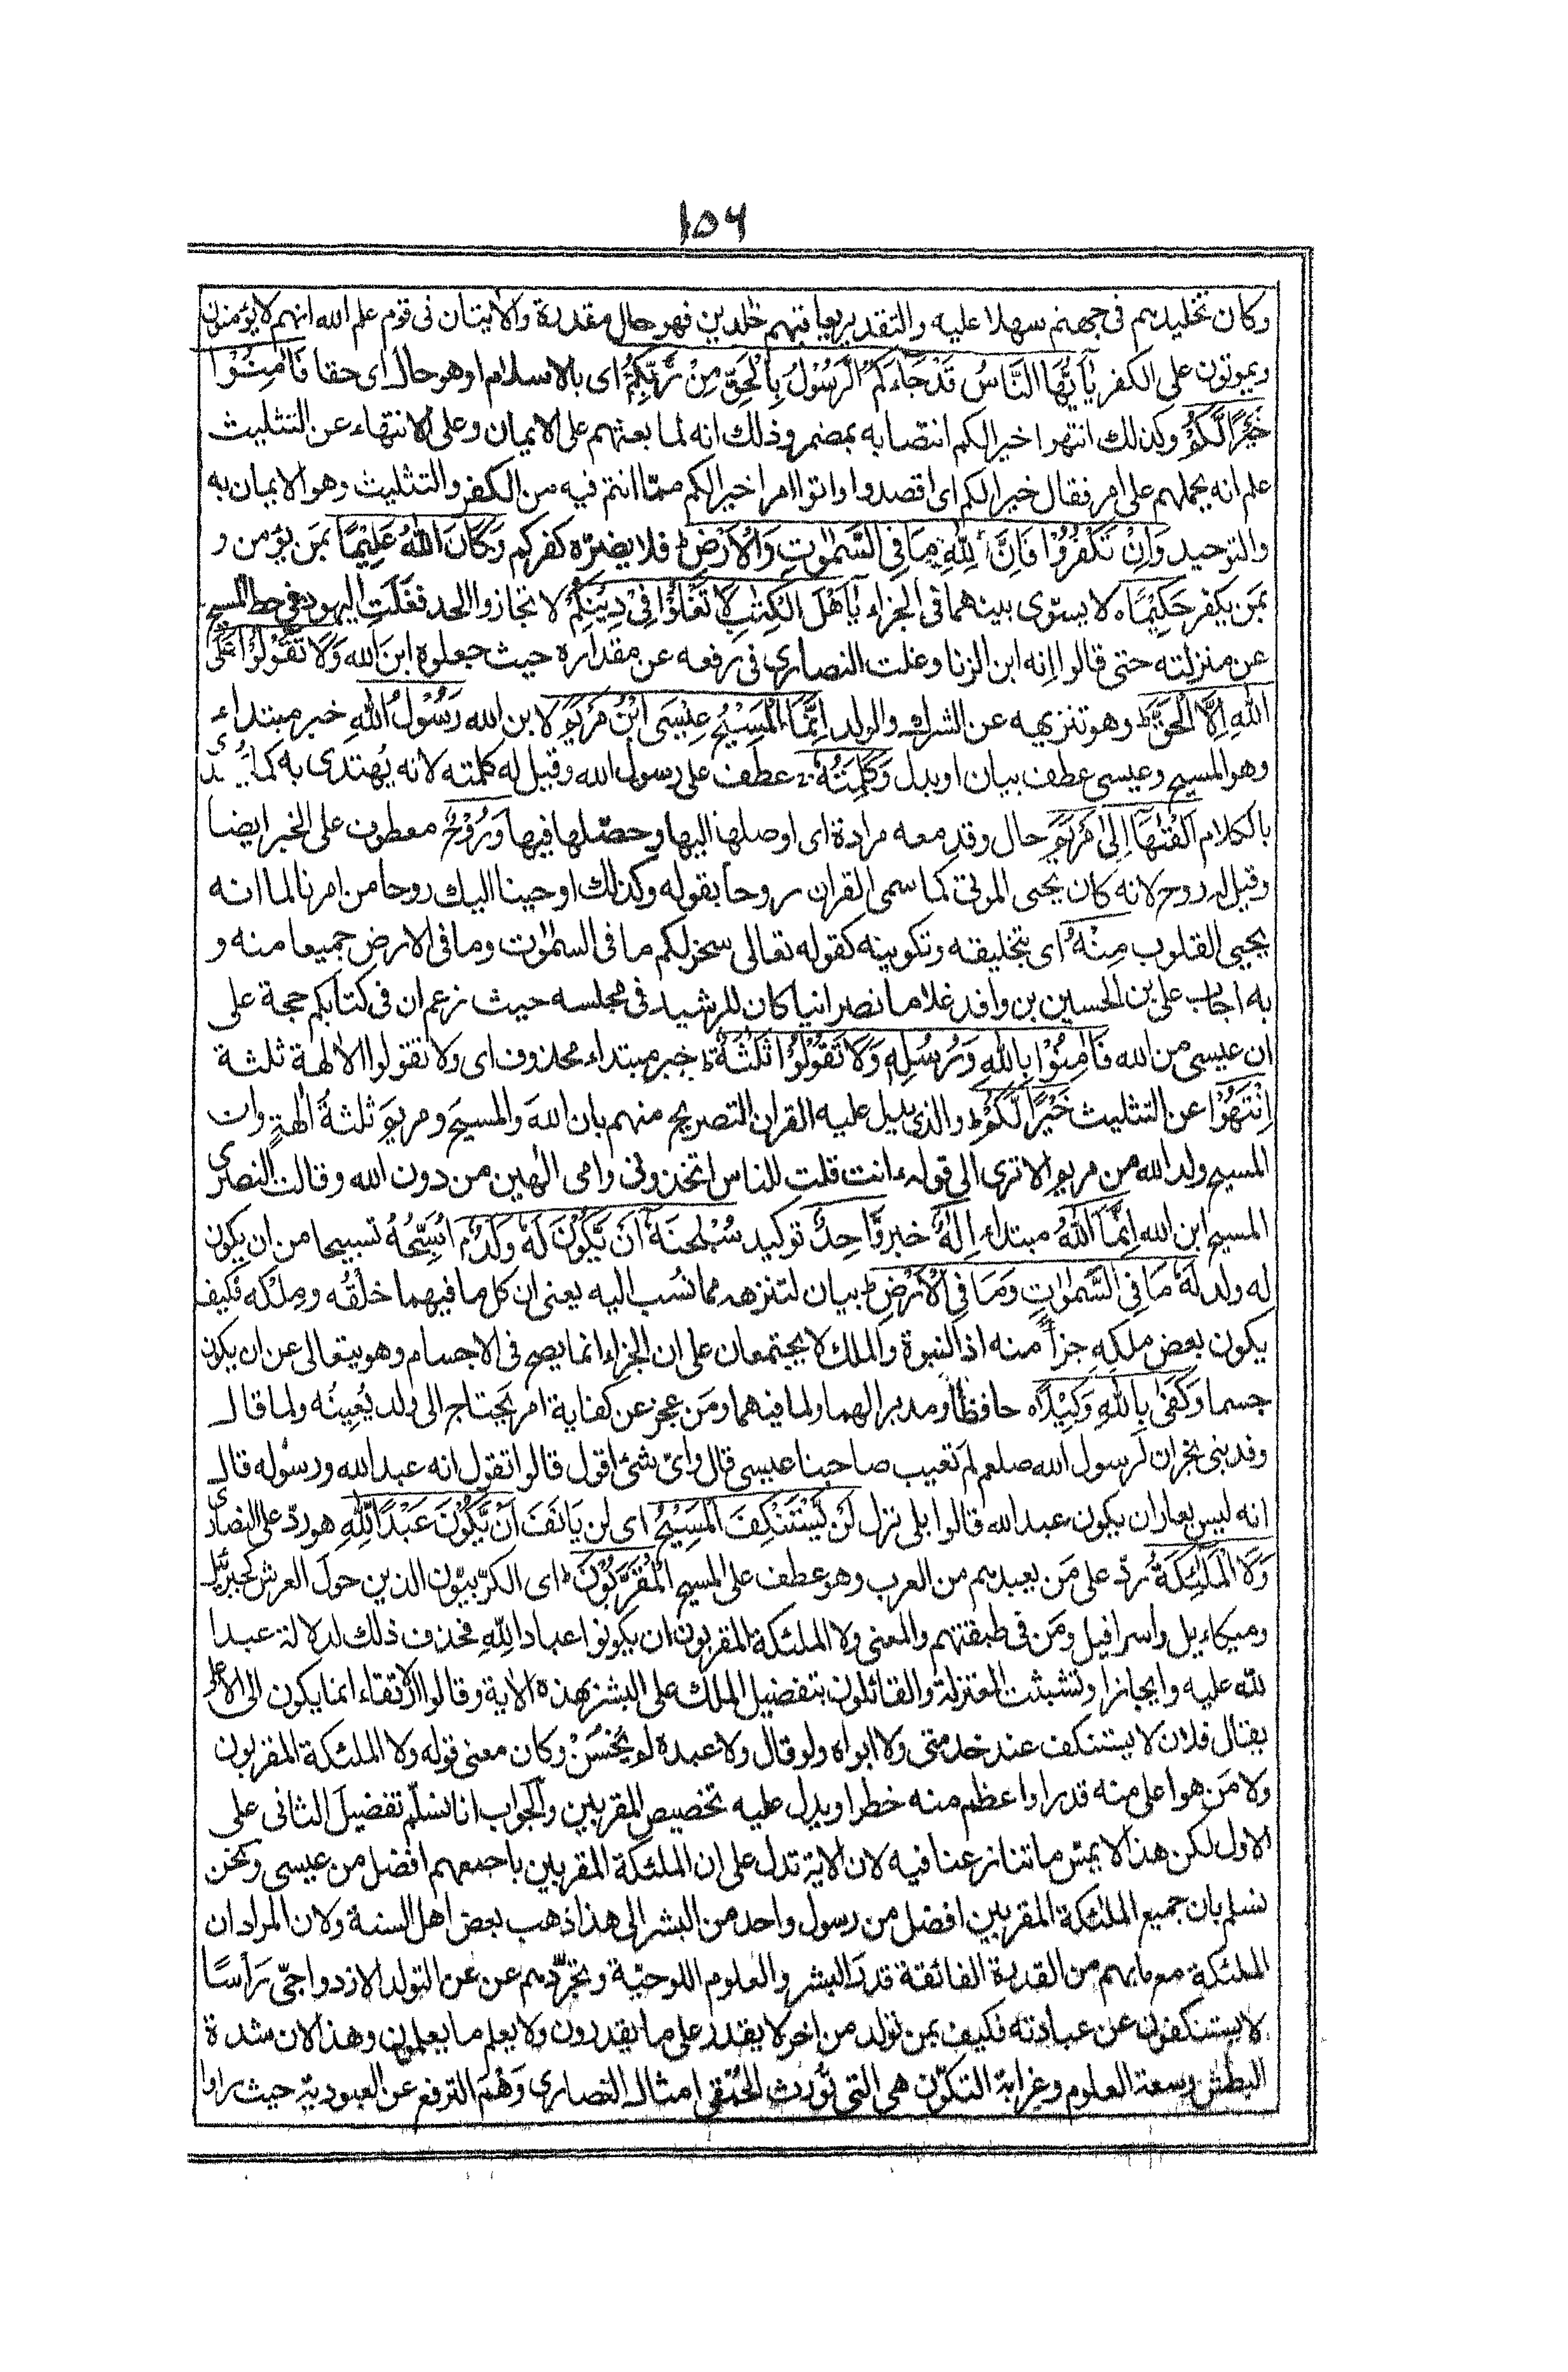 ۱۵۶
وكان تخليدهم فى جهنم سهلا عليه والتقدير يعاقبهم خٰلدين فهو حال مقدرة والاٰيتان فى قوم علم الله انهم لا يؤمنون
ويموتون على الكفر يٰۤاَيُّهَا النَّاسُ قَدْ جَآءَكُمُ الرَّسُوْلُ بِالْحَقِّ مِنْ رَّبِّكُمْ اى بالاسلام اوهو حال اى حقا فَاٰمِنُوْا
خَيْرًا لَّكُمْ وكذلك انتهوا خيرا لكم انتصابه بمضمر وذلك انه لما بعثهم على الايمان وعلى الانتهاء عن التثليث
علم انه يحملهم على امر فقال خيرا لكم اى اقصدوا واتوا امرا خيرا لكم ممّا انتم فيه من الكفر والتثليث وهو الايمان به
والتوحيد وَاِنْ تَكْفُرُوْا فَاِنَّ لِلّٰهِ مَا فِى السَّمٰوٰتِ وَالْاَرْضِ ط فلا يضرّه كفركم وَكَانَ اللّٰهُ عَلِيْمًا بمَن يؤمن و
بمَن يكفر حَكِيْمًا ه لا يسوّى بينهما فى الجزاء يٰۤاَهْلَ الْكِتٰبِ لَا تَغْلُوْا فِىْ دِيْنِكُمْ لا تجازوا الحد فغلَت اليهود فى حط المسيح
عن منزلته حتى قالوا اِنه ابن الزنا وغلت النصارى فى رفعه عن مقداره حيث جعلوه ابنَ الله وَلَا تَقُوْلُوْا عَلَى
اللّٰهِ اِلَّا الْحَقَّ ط وهو تنزيهه عن الشرك والولد اِنَّمَا الْمَسِيْحُ عِيْسَى ابْنُ مَرْيَمَ لا بن الله رَسُوْلُ اللّٰهِ خبر مبتداء
وهو المسيح وعيسى عطف بيان اوبدل وَكَلِمَتُهٗ ج عطف على رسول الله وقيل له كلمته لانه يُهتدى به كما يُهتدى
بالكلام اَلْقٰىهَاۤ اِلٰى مَرْيَمَ حال وقد معه مرادة اى اوصلها اليها وحصّلها فيها وَرُوْحٌ معطوف على الخبر ايضا
وقيل له روح لانه كان يحيى الموتى كما سمى القراٰن روحا بقوله وكذلك اوحينا اليك روحا من امرنا لما انه
يحيى القلوب مِنْهُ اى بتخليقه وتكوينه كقوله تعالى سخر لكم ما فى السمٰوٰت وما فى الارض جميعا منه و
به اجاب على بن الحسين بن وافد غلاما نصرانيا كان للرشيد فى مجلسه حيث زعم ان فى كتابكم حجة على
ان عيسى من الله فَاٰمِنُوْا بِاللّٰهِ وَرُسُلِهٖ وَلَا تَقُوْلُوْا ثَلٰثَةٌ ط خبر مبتداء محذوف اى ولا تقولوا الاٰلهة ثلثة
اِنْتَهُوْا عن التثليث خَيْرًا لَّكُمْ ط والذى يدل عليه القراٰن التصريح منهم بان اللهَ والمسيحَ ومريمَ ثلثةُ اٰلهةٍ وان
المسيح ولد الله من مريم الا ترى الى قوله ءانت قلت للناس اتخذونى وامى الٰهين من دون الله وقالت النصٰرى
المسيح ابن الله اِنَّمَا اللّٰهُ مبتداء اِلٰهٌ خبر وَّاحِدٌ توكيد سُبْحٰنَهٗۤ اَنْ يَّكُوْنَ لَهٗ وَلَدٌ م اُسَبِّحُهٗ تسبيحا من ان يكون
له ولد لَهٗ مَا فِى السَّمٰوٰتِ وَمَا فِى الْاَرْضِ ط بيان لتنزهه مما نُسب اليه يعنى ان كل ما فيهما خلْقُه ومِلْكه فكيف
يكون بعض ملكِه جزأ منه اذ النبوة والملك لا يجتمعان على ان الجزاء انما يصح فى الاجسام وهو يتعالى عن ان يكون
جسما وَكَفٰى بِاللّٰهِ وَكِيْلًا ه حافظا ومدبرا لهما ولما فيهما ومَن عجز عن كفاية امر يَحتاج الى ولد يُعِينُه ولما قال
وفد بنى نجران لرسول الله صلعم لم تعيب صاحبنا عيسى قال واىّ شئ اقول قالوا تقول انه عبد الله ورسوله قال
انه ليس بعار ان يكون عبد الله قالوا بلى نزل لَنْ يَّسْتَنْكِفَ الْمَسِيْحُ اى لن يَانَفَ اَنْ يَّكُوْنَ عَبْدًا لِّلّٰهِ هو ردّ على النصارى
وَلَا الْمَلٰٓئِكَةُ ردّ على مَن يعبدهم من العرب وهو عطف على المسيح الْمُقَرَّبُوْنَ ط اى الكرّبيّون الذين حول العرش كجبرئيل
وميكاءيل واسرافيل ومَن فى طبقتهم والمعنى ولا الملٰئكة المقربون ان يكونوا عبادا لِلّٰهِ فحذف ذلك لدلالة عبدا
لله عليه وايجازا وتشبثت المعتزلة والقائلون بتفضيل الملَك على البشر بهذه الاٰية وقالوا الارتقاء انما يكون الى الاعلى
يقال فلان لا يستنكف عند خدمتى ولا ابواه ولو قال ولا عبده لم يَحْسُنْ وكان معنى قوله ولا الملٰئكة المقربون
ولا مَن هو اعلى منه قدرا واعظم منه خطرا ويدل عليه تخصيص المقربين والجواب انا نسلّم تفضيلَ الثانى على
الاول لكن هذا لا يمسّ ما تنازعنا فيه لان الاٰية تدل على ان الملٰئكة المقربين باجمعهم افضل من عيسى ونحن
نسلم بان جميع الملٰئكة المقربين افضل من رسول واحد من البشر الى هذا ذهب بعض اهل السنة ولان المراد ان
الملٰئكة مع ما بهم من القدرة الفائقة قدرَ البشر والعلوم اللوحيّة وتجرّدهم عن عن التولد الازدواجىّ رَاْسًا
لا يستنكفون عن عبادته فكيف بمن تولد من اٰخر لا يقدر على ما يقدرون ولا يعلم ما يعلمون وهذا لان شدة
البطش وسعة العلوم وغرابة التكوّن هى التى تُورث الحُمَقٰى امثال النصارى وَهْمَ الترفع عن العبودية حيث راوا